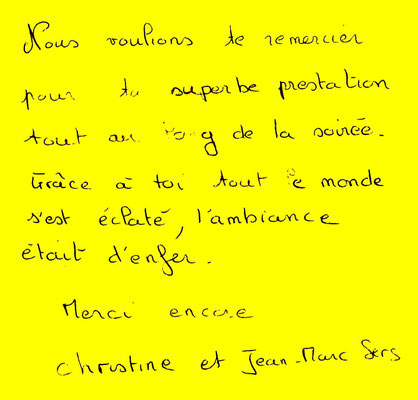 Nous voulions te remercier
pour ta superbe prestation
tout au long de la soirée.
Grâce à toi tout le monde
s'est éclaté, l'ambiance
était d'enfer.
Merci encore
Christine et Jean-Marc Sers